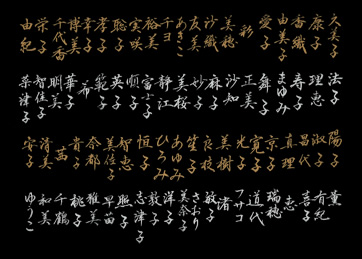 久美子
康子
香織
由美子
愛子
彩
美穂
沙織
友美
あきこ
千ヨ
裕美
実咲
聡子
孝子
幸子
博美
千代香
栄子
由紀
法子
理恵
寿子
まゆみ
舞子
正美
沙知
麻子
妙子
美桜
静江
富士子
順子
英子
範子
希
華
明美
智佳子
菜津子
陽子
淑子
昌代
真理
京子
寛子
光子
美樹
良枝
笙子
あゆみ
ひろみ
恒子
智恵
奈都美
貴子
茜
清美
容子
有紀
喜子
恵
瑞穂
道代
フサコ
渚
敏子
さおり
美奈子
洋子
敦子
志津子
照子
早苗
雅美
桃子
千鶴
和美
ゆうこ